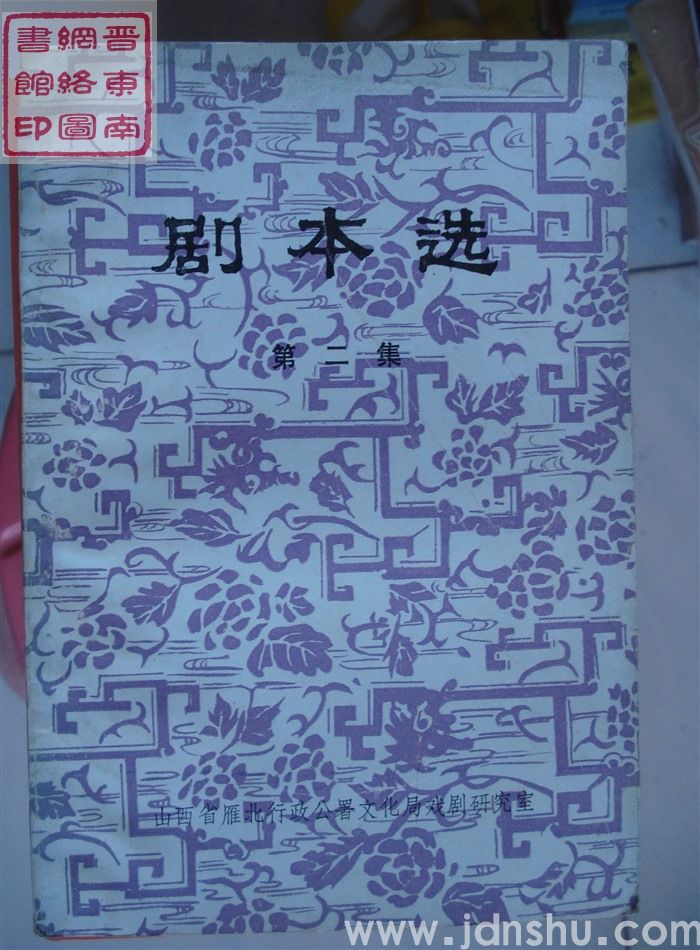 晋东南
網絡圖
書館印
剧本选
第二集
山西省雁北行政公署文化局戏剧研究室
www.jdnshu.com